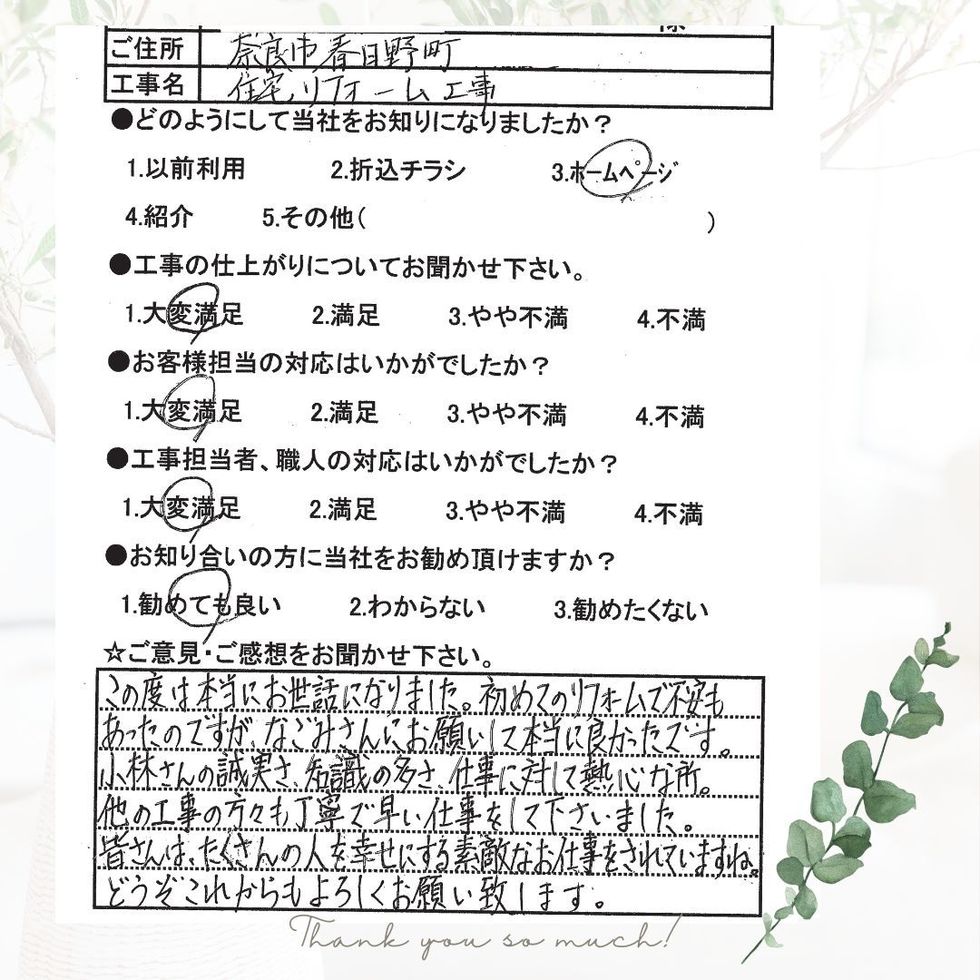 様
ご住所 奈良市春日野町
工事名 住宅リフォーム工事
●どのようにして当社をお知りになりましたか？
1.以前利用 2.折込チラシ 3.ホームページ
4.紹介 5.その他( )
●工事の仕上がりについてお聞かせ下さい。
1.大変満足 2.満足 3.やや不満 4.不満
●お客様担当の対応はいかがでしたか？
1.大変満足 2.満足 3.やや不満 4.不満
●工事担当者、職人の対応はいかがでしたか？
1.大変満足 2.満足 3.やや不満 4.不満
●お知り合いの方に当社をお勧め頂けますか？
1.勧めても良い 2.わからない 3.勧めたくない
☆ご意見・ご感想をお聞かせ下さい。
この度は本当にお世話になりました。初めてのリフォームで不安も
あったのですが、なごみさんにお願いして本当に良かったです。
小林さんの誠実さ、知識の多さ、仕事に対して熱心な所。
他の工事の方々も丁寧で早い仕事をして下さいました。
皆さんは、たくさんの人を幸せにする素敵なお仕事をされていますね。
どうぞこれからもよろしくお願い致します。
Thank you so much!